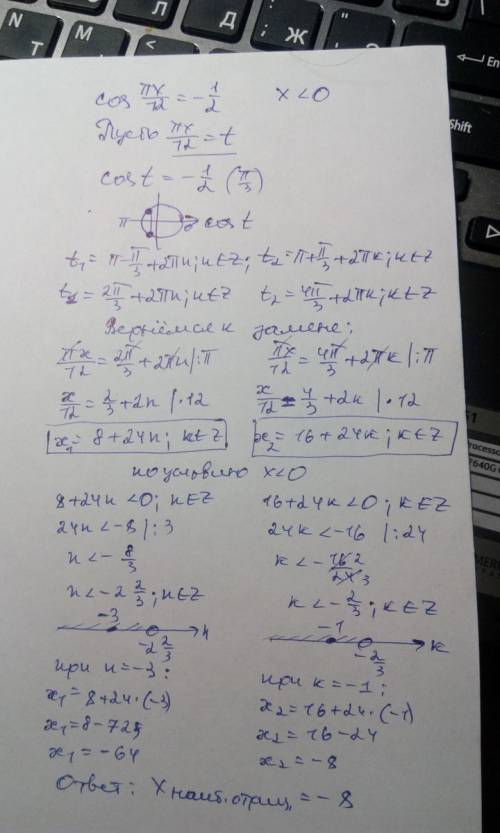 cos πx/12 = -1/2    x < 0
Пусть πx/12 = t
cos t = -1/2 (π/3)
π cos t
t₁ = π - π/3 + 2πn; n∈Z; t₂ = π + π/3 + 2πk; k∈Z
t₁ = 2π/3 + 2πn; n∈Z    t₂ = 4π/3 + 2πk; k∈Z
Вернёмся к замене:
πx/12 = 2π/3 + 2πn |:π    πx/12 = 4π/3 + 2πk |:π
x/12 = 2/3 + 2n |·12    x/12 = 4/3 + 2k |·12
x₁ = 8 + 24n; k∈Z    x₂ = 16 + 24k; k∈Z
по условию x<0
8 + 24n < 0; n∈Z    16 + 24k < 0; k∈Z
24n < -8 |:3    24k < -16 |:24
n < -8/3    k < -16/24 2/3
n < -2 2/3; n∈Z    k < -2/3; k∈Z
-3    -1
-2 2/3 n    -2/3 k
при n = -3:    при k = -1:
x₁ = 8 + 24·(-3)    x₂ = 16 + 24·(-1)
x₁ = 8 - 72;    x₂ = 16 - 24
x₁ = -64    x₂ = -8
Ответ: x наиб. отриц. = -8
N
M
Т
Ь
Л
Д
Ж
Enter
Shift